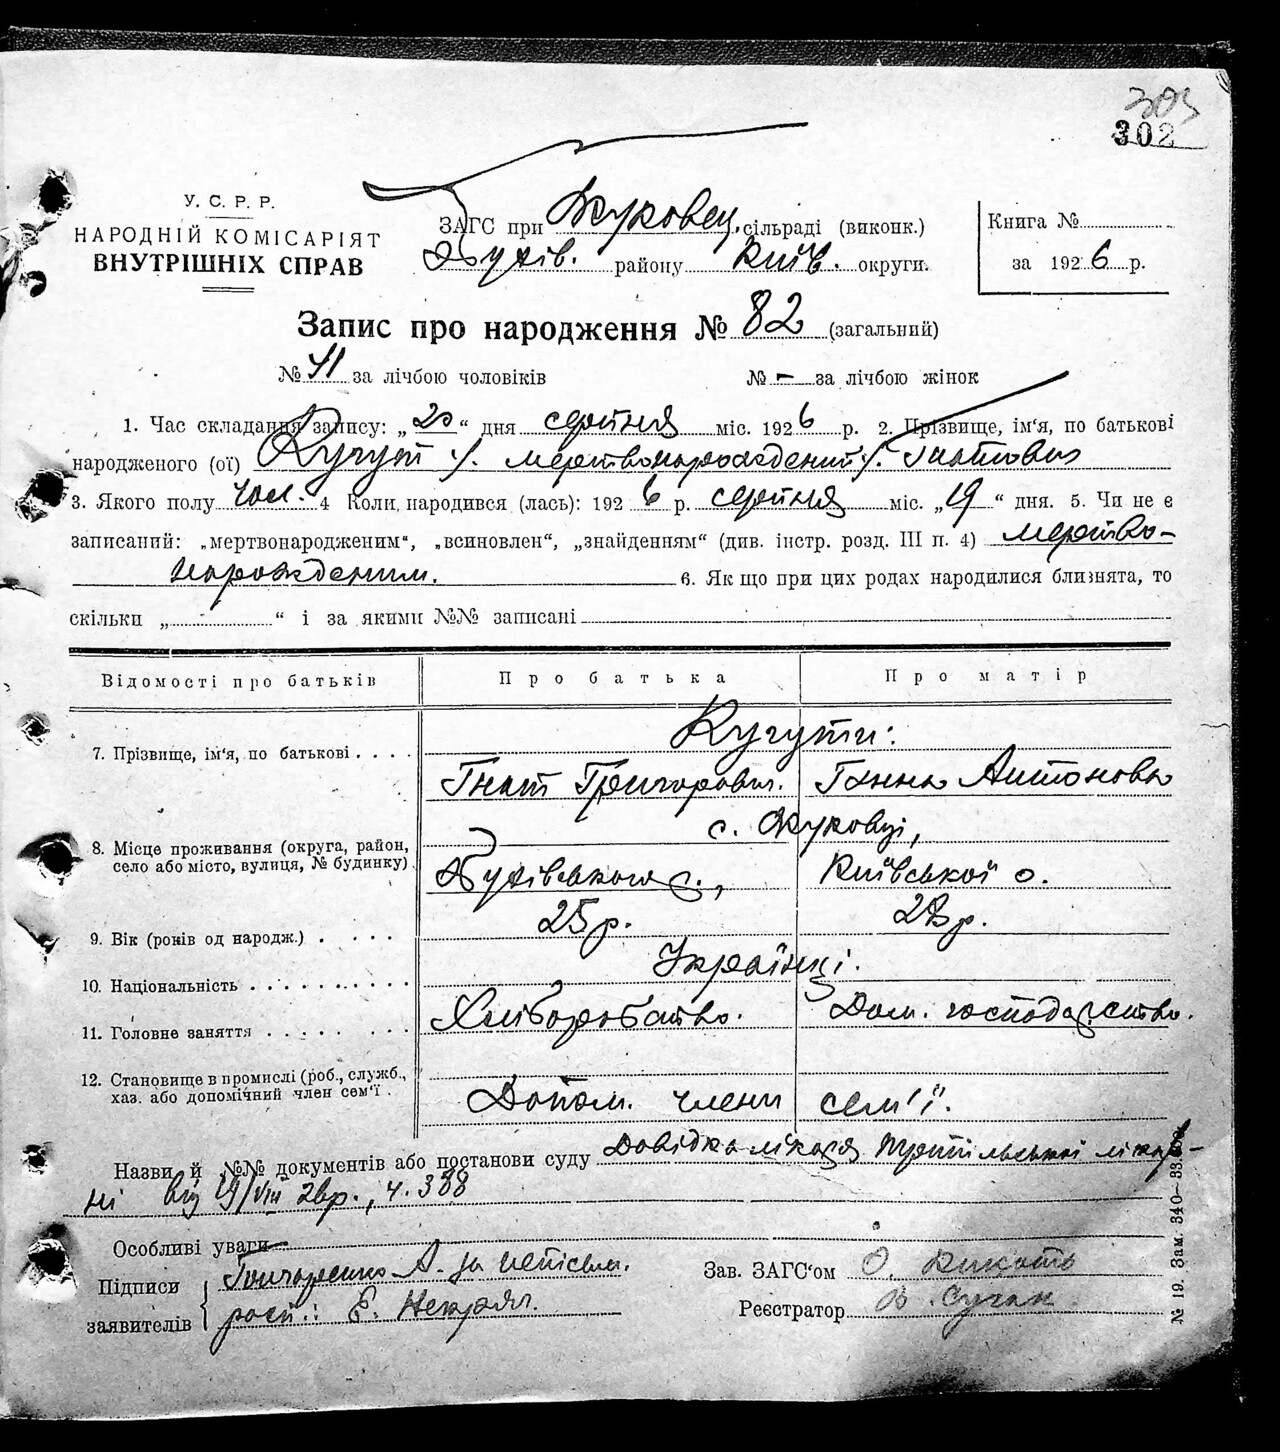 303
302
У. С. Р. Р.
НАРОДНІЙ КОМІСАРІЯТ
ВНУТРІШНІХ СПРАВ
ЗАГС при Жуковец. сільраді (виконк.)
Обухів. району Київ. округи.
Книга №
за 1926 р.
Запис про народження № 82 (загальний)
№ 41 за лічбою чоловіків № - за лічбою жінок
1. Час складання запису: „20“ дня серпня міс. 1926 р. 2. Прізвище, ім‘я, по батькові
народженого (ої) Кугут /. мертвонарождений /. Гнатович
3. Якого полу чол. 4 Коли народився (лась): 1926 р. серпня міс. „19“ дня. 5. Чи не є
записаний: „мертвонародженим“, „всиновлен“, „знайденням“ (див. інстр. розд. III п. 4) мертво-
нарожденим. 6. Як що при цих родах народилися близнята, то
скільки „ “ і за якими №№ записані
Відомості про батьків Про батька Про матір
Кугути:
7. Прізвище, ім‘я, по батькові . . . .
Гнат Григорович. Ганна Антонова
с. Жуковці,
8. Місце проживання (округа, район,
село або місто, вулиця, № будинку)
Обухівського р., Київської о.
9. Вік (років од народж.) . . . . 25 р. 23 р.
Українці.
10. Національність . . . . . . . . . .
11. Головне заняття . . . . . . . Хліборобство. Дом. господарство.
12. Становище в промислі (роб., служб.,
хаз. або допомічний член сем‘ї .
Допом. члени сем'ї.
Назви й №№ документів або постанови суду Довідка лікаря Трипільської лікар-
ні від 19/VIII 26р., ч. 388
Особливі уваги
Підписи
заявителів
Гончаренко А. за неписьм.
росп.:
Зав. ЗАГС‘ом О.
Реєстратор
№ 19. Зам. 340—33.000